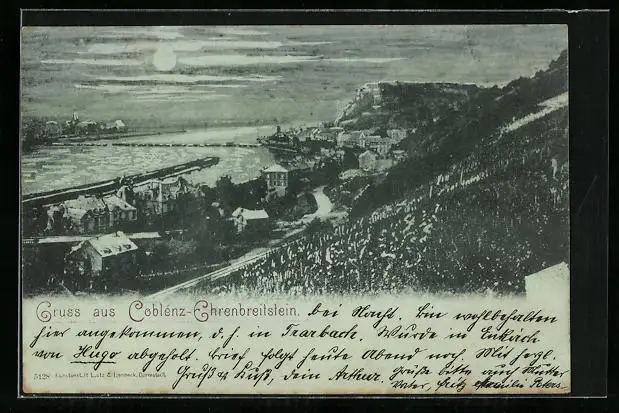 Gruss aus Coblénz-Ehrenbreitstein. bei Nacht. Bin wohlbehalten
hier angekommen, d. h. in Trarbach. Wurde in Enkirch
von Hugo abgeholt. Brief folgt heute Abend noch. Mit frdl.
Gruß & Kuß, dein Arthur. Grüße bitte auch Mutter
Vater, Fritz
5128 Kunstanst. Lautz & Isenbeck, Darmstadt.